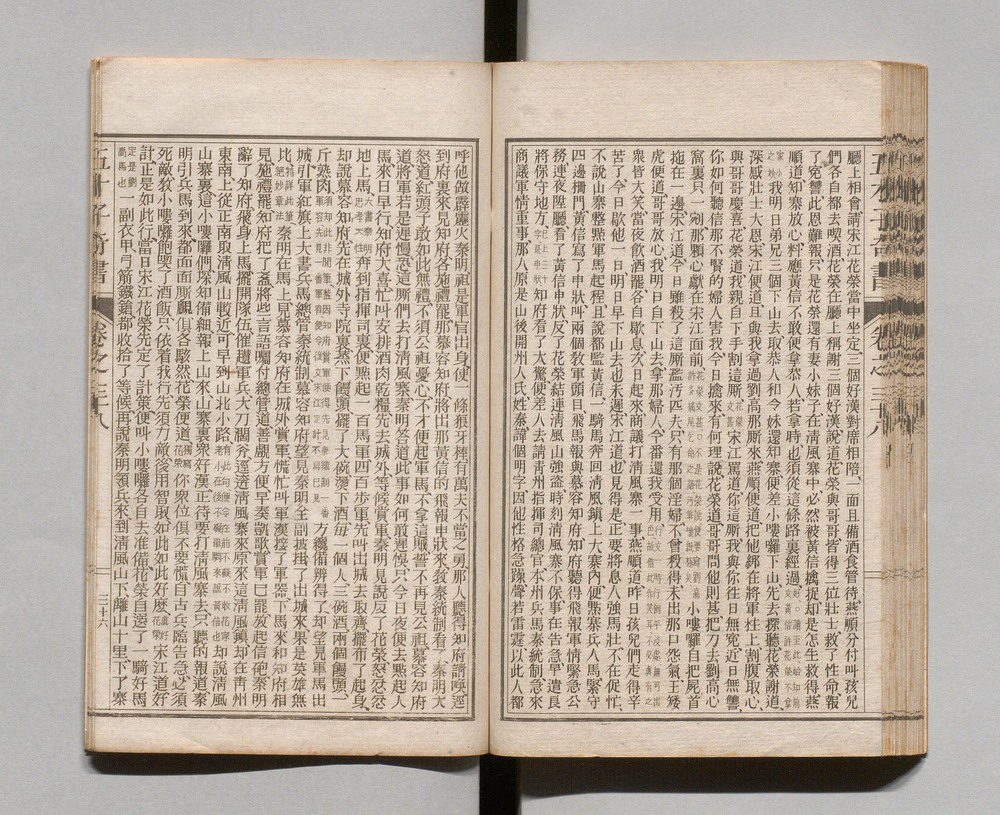 五才子奇書 卷之三十八
廳上相會請宋江花榮當中坐定三個好漢對席相陪一面且備酒食管待燕順分付叫孩兒
們各自都去喫酒花榮在廳上稱謝三個好漢說道花榮與哥哥皆得三位壯士救了性命報
了寃讐此恩難報只是花榮還有妻小妹子在清風寨中必然被黃信擒捉却是怎生救得燕
順道知寨放心料應黃信不敢便拿恭人若拿時也須從這條路裏經過
我明日弟兄三個下山去取恭人和令妹還知寨便差小嘍囉下山先去探聽花榮謝道
深感壯士大恩宋江便道且與我拿過劉高那厮來燕順便道把他綁在將軍柱上割腹取心
與哥哥慶喜花榮道我親自下手割這厮宋江罵道你這厮我與你往日無寃近日無讐
你如何聽信那不賢的婦人害我今日擒來有何理說花榮道哥哥問他則甚把刀去劉高心
窩裏只一剜那顆心獻在宋江面前小嘍囉自把屍首
拖在一邊宋江道今日雖殺了這厮濫汚匹夫只有那個淫婦不曾殺得未出那口怨氣王矮
虎便道哥哥放心我明日自下山去拿那婦人今番還我受用
衆皆大笑當夜飲酒罷各自歇息次日起來商議打清風寨一事燕順道昨日孩兒們走得辛
苦了今日歇他一日明日早下山去也未遲宋江道也見得是正要將息人強馬壯不在促忙
不說山寨整點軍馬起程且說都監黃信一騎馬奔回清風鎮上大寨內便點寨兵人馬緊守
四邊柵門黃信寫了申狀叫兩個敎軍頭目飛馬報與慕容知府知府聽得飛報軍情緊急公
務連夜陞廳看了黃信申狀反了花榮結連清風山強盜時刻清風寨不保事在告急早遣良
將保守地方知府看了大驚便差人去請靑州指揮司總管本州兵馬秦統制急來
商議軍情重事那人原是山後開州人氏姓秦諱個明字因他性格急躁聲若雷霆以此人都
呼他做霹靂火秦明祖是軍官出身使一條狼牙棒有萬夫不當之勇那人聽得知府請喚逕
到府裏來見知府各施禮罷那慕容知府將出那黃信的飛報申狀來敎秦統制看了秦明大
怒道紅頭子敢如此無禮不須公祖憂心不才便起軍馬不拿這賊誓不再見公祖慕容知府
道將軍若是遲慢恐這厮們去打淸風寨秦明答道此事如何敢遲悞只今日夜便去點起人
馬來日早行知府大喜忙叫安排酒肉乾糧先去城外等候賞軍秦明見說反了花榮怒忿忿
地上馬奔到指揮司裏便點起一百馬軍四百步軍先叫出城去取齊擺布了起身
却說慕容知府先在城外寺院裏蒸下饅頭擺了大碗燙下酒每一個人三碗酒兩個饅頭一
斤熟肉方纔備辨得了却望見軍馬出
城引軍紅旗上大書兵馬總管秦統制慕容知府望見秦明全副披掛了出城來果是英雄無
比秦明在馬上見慕容知府在城外賞軍慌忙叫軍漢接了軍器下馬來和知府相
見施禮罷知府把了盞將些言語囑付總管道善覷方便早奏凱歌賞軍已罷放起信砲秦明
辭了知府飛身上馬擺開隊伍催趲軍兵大刀闊斧逕逩淸風寨來原來這淸風鎮却在靑州
東南上從正南取清風山較近可早到山北小路却說淸風
山寨裏這小嘍囉們探知備細報上山來山寨裏衆好漢正待要打淸風寨去只聽的報道秦
明引兵馬到來都面面厮覷俱各駭然花榮便道你衆位俱不要慌自古兵臨告急必須
死敵敎小嘍囉飽喫了酒飯只依着我行先須力敵後用智取如此如此好麼宋江道好
計正是如此行當日宋江花榮先定了計策便叫小嘍囉各自去准備花榮自選了一騎好馬
一副衣甲弓箭鐵鎗都收拾了等候再說秦明領兵來到清風山下離山十里下了寨
五才子奇書 卷之三十八
三十六